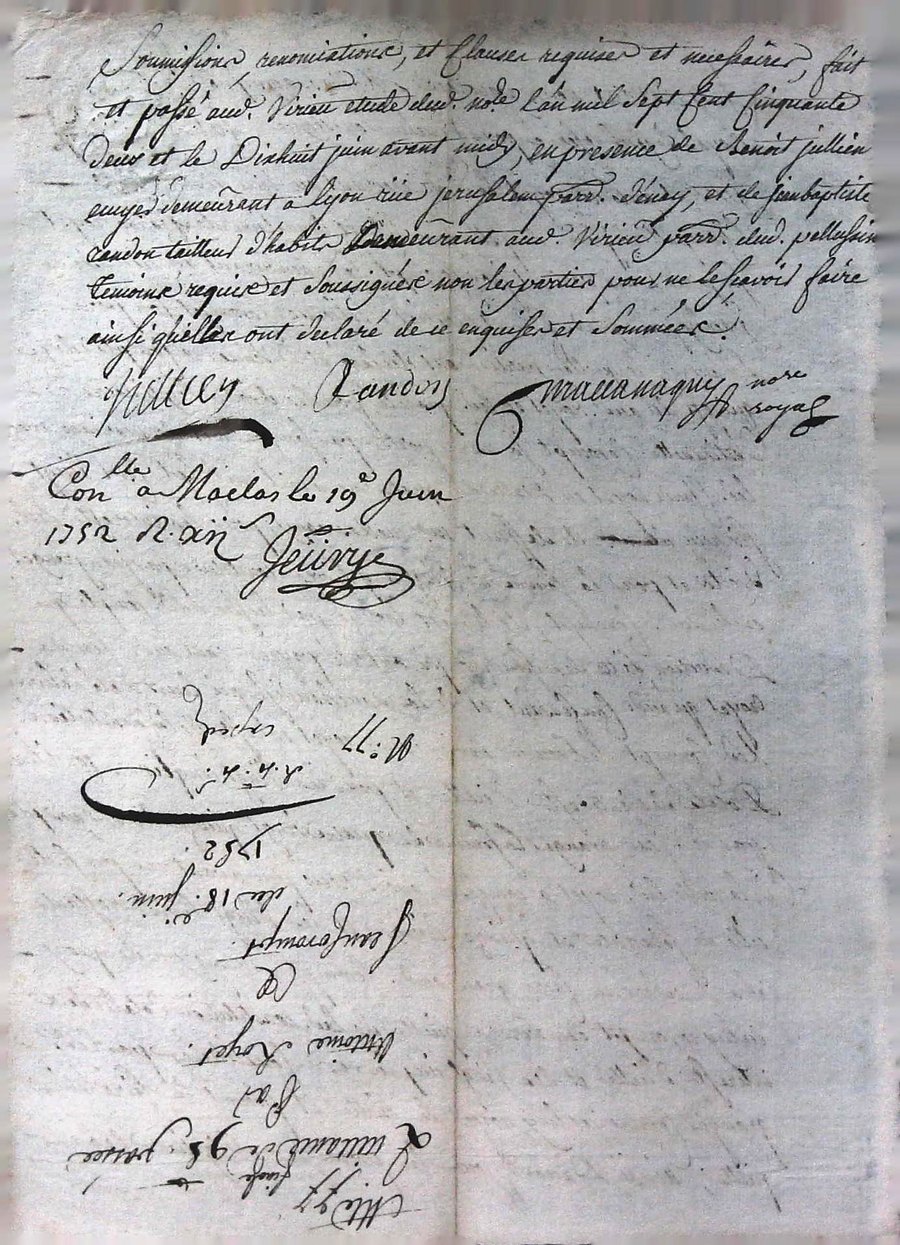 Soumissions, renonciations, et Clauses requises et necessaires, fait
et passé aud. Virieu etude dud. nore l'an mil sept Cent Cinquante
deux et le Dixhuit juin avant midy en presence de Benoit jullien
demeurant a lyon rüe jerusalem parr. d'énay, et de jeanbaptiste
randon tailleur d'habits Demeurant aud. Virieu parr. dud. pellussin
temoins requis et soussignés non les parties pour ne le scavoir faire
ainsi quelles ont declaré de ce enquises et sommées.
Jullien Randon nore
royal
Conlle a Maclas le 19e Juin
1752 R. xii s
N.° 77
1752.
du 18e juin.
Jean
a
Antoine Royet.
Par
passée
77